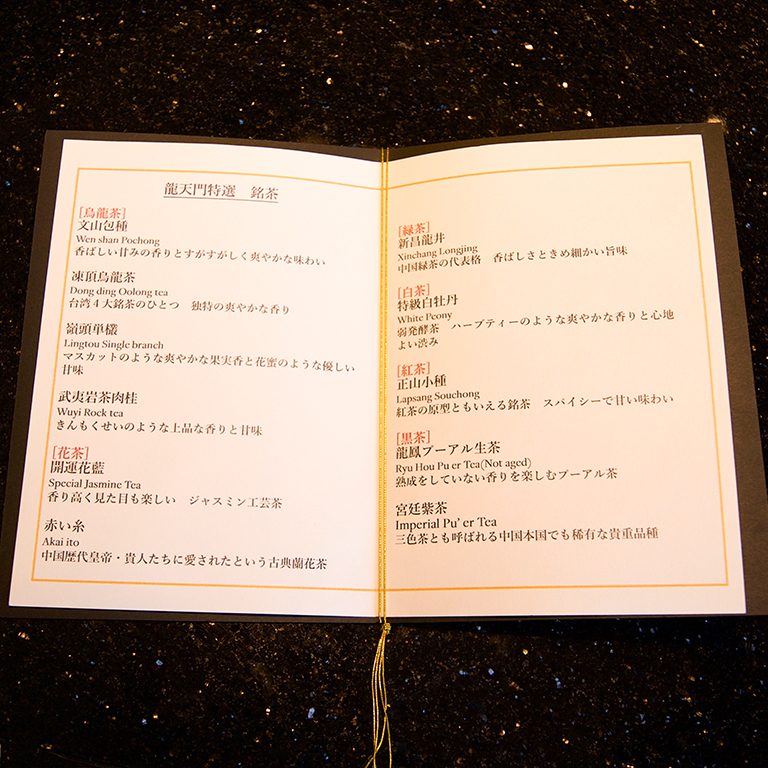 龍天門特選　銘茶
[烏龍茶]
文山包種
Wen shan Pochong
香ばしい甘みの香りとすがすがしく爽やかな味わい
凍頂烏龍茶
Dong ding Oolong tea
台湾4大銘茶のひとつ　独特の爽やかな香り
嶺頭単欉
Lingtou Single branch
マスカットのような爽やかな果実香と花蜜のような優しい
甘味
武夷岩茶肉桂
Wuyi Rock tea
きんもくせいのような上品な香りと甘味
[花茶]
開運花藍
Special Jasmine Tea
香り高く見た目も楽しい　ジャスミン工芸茶
赤い糸
Akai ito
中国歴代皇帝・貴人たちに愛されたという古典蘭花茶
[緑茶]
新昌龍井
Xinchang Longjing
中国緑茶の代表格　香ばしさときめ細かい旨味
[白茶]
特級白牡丹
White Peony
弱発酵茶　ハーブティーのような爽やかな香りと心地
よい渋み
[紅茶]
正山小種
Lapsang Souchong
紅茶の原型ともいえる銘茶　スパイシーで甘い味わい
[黒茶]
龍鳳プーアル生茶
Ryu Hou Pu er Tea(Not aged)
熟成をしていない香りを楽しむプーアル茶
宮廷紫茶
Imperial Pu' er Tea
三色茶とも呼ばれる中国本国でも稀有な貴重品種